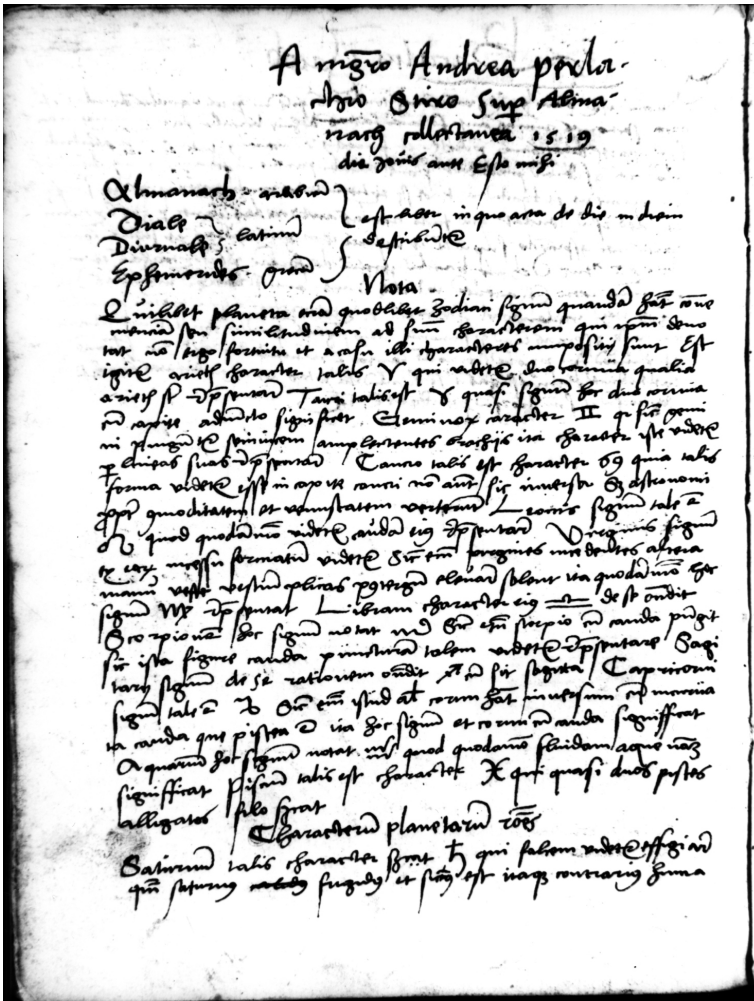 A mgro Andrea perla-
chio Stiro Sup Alma-
nach collectanea 1519
die Jovis ante Esto mihi
Almanach arabicu
Diale
Diurnale latinu
Ephemerides grecu
est liber in quo acta de die in diem
describuntur
Nota
Quilibet planeta eciam quodlibet zodiaci signum quandam hat conve
nienciam seu similitudinem ad suum characterem qui ipm deno
tat no ergo fortuitu et a casu illi characteres impositi sunt Est
igitur arietis character talis ♈ qui videtur duo cornua qualia
arietis st repsentare Tauri talis est ♉ quasi signum hoc duo cornua
cu capite adiuncto significet Geminorum caracter ♊ qi sicut gemi
ni seinvicem amplectentes brachijs ita character iste videtur
p lineas suas repsentare Cancro talis est character ♋ quia talis
forma videtur esse in capite cancri no aut sic inversa sz astronomi
propter comoditatem et venustatem verterunt Leonis signum tale e
♌ quod quodammo videtur caudam eius repsentare Virginis signum
ex incessu formatum videtur Sicut em virgines incedentes altera
manu veste vestium plicas post tergum elevare solent ita quodammo hoc
signum ♍ repsentat Libram character eius ♎ de se ondit
Scorpionem hoc signum notat ♏ Sicut em scorpio cu cauda pungit
sic ista figure cauda puncturam talem videtur repsentare Sagi
tary signum de se rationem ondit ♐ cu sit sagitta Capricorni
signum tale e ♑ Sicut em istud al cornu hat inversum cu
ta cauda que piscea e ita hoc signum et cornu cu cauda significat
Aquarium hoc signum notat ♒ quod quodammo fluidam aque
significat Piscium talis est character ♓ qui quasi duos pisces
alligatos filo
Characterum planetarum roes
Saturnum talis character ♄ qui falcem videtur effigiare
qm saturnus frigidus et siccus est itaque contrarius huma